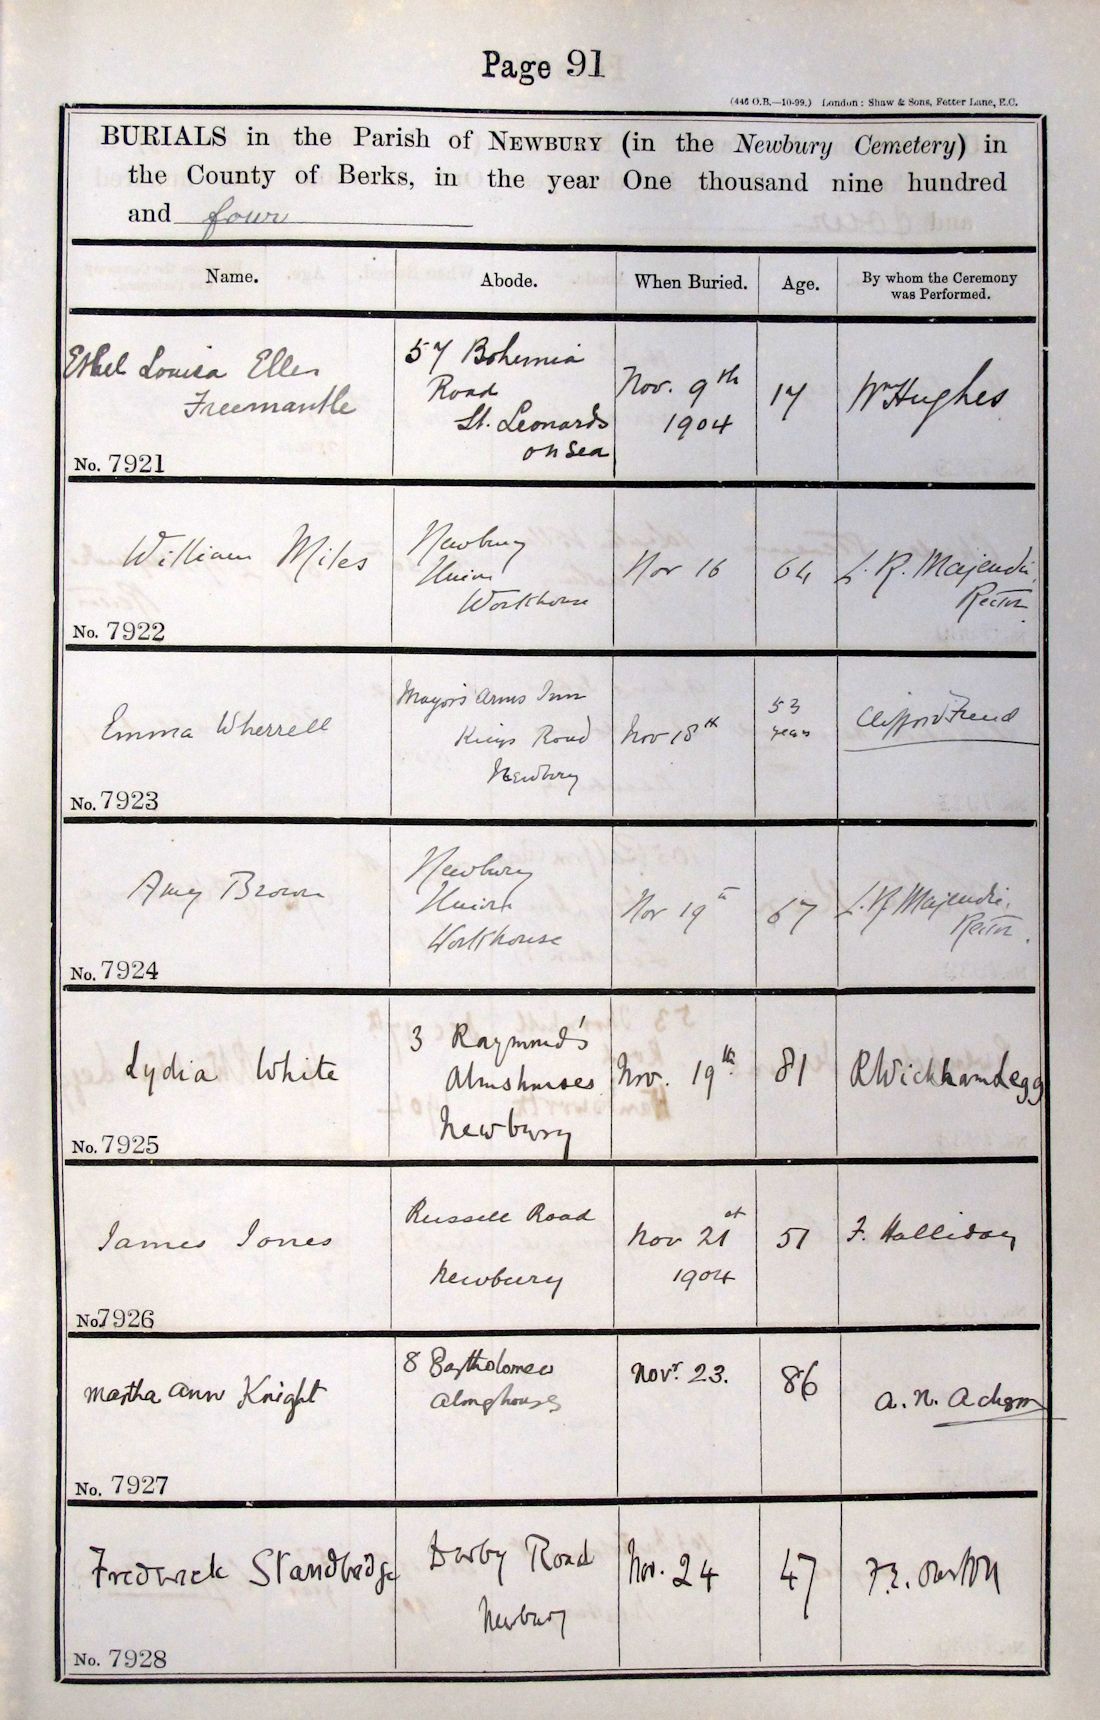 Page 91
(446 O.B.—10-99.) London: Shaw & Sons, Fetter Lane, E.C.
BURIALS in the Parish of NEWBURY (in the Newbury Cemetery) in
the County of Berks, in the year One thousand nine hundred
and four
Name. Abode. When Buried. Age. By whom the Ceremony was Performed.
Ethel Louisa Ellen
Freemantle
No. 7921
57 Bohemia
Road
St. Leonards
on Sea
Nov. 9th
1904
17
Wm Hughes
William Miles
No. 7922
Newbury
Union
Workhouse
Nov 16
64
L. R. Majendie,
Rector
Emma Wherrell
No. 7923
Mayors Arms Inn
Kings Road
Newbury
Nov 18th
53
years
Clifford Freud
Amy Brown
No. 7924
Newbury
Union
Workhouse
Nov 19th
67
L. R Majendie.
Rector.
Lydia White
No. 7925
3 Raymond's
Almshouses
Newbury
Nov. 19th
81
R Wickham Legg
James Jones
No. 7926
Russell Road
Newbury
Nov 21st
1904
51
F. Halliday
Martha Ann Knight
No. 7927
8 Bartholomew
Novr. 23.
86
A. N.
Frederick Standbridge
No. 7928
Derby Road
Newbury
Nov. 24
47
F. E. Overton